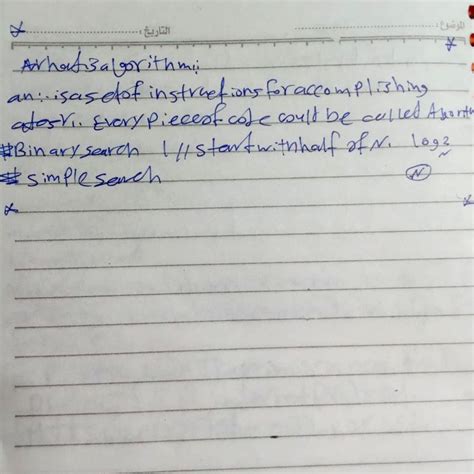 التاريخ: الموضوع:
What is algorithm:
an: is a set of instructions for accomplishing
a task. Every piece of code could be called Algorithm
#Binary search | // start with half of N. log2
# simple search N